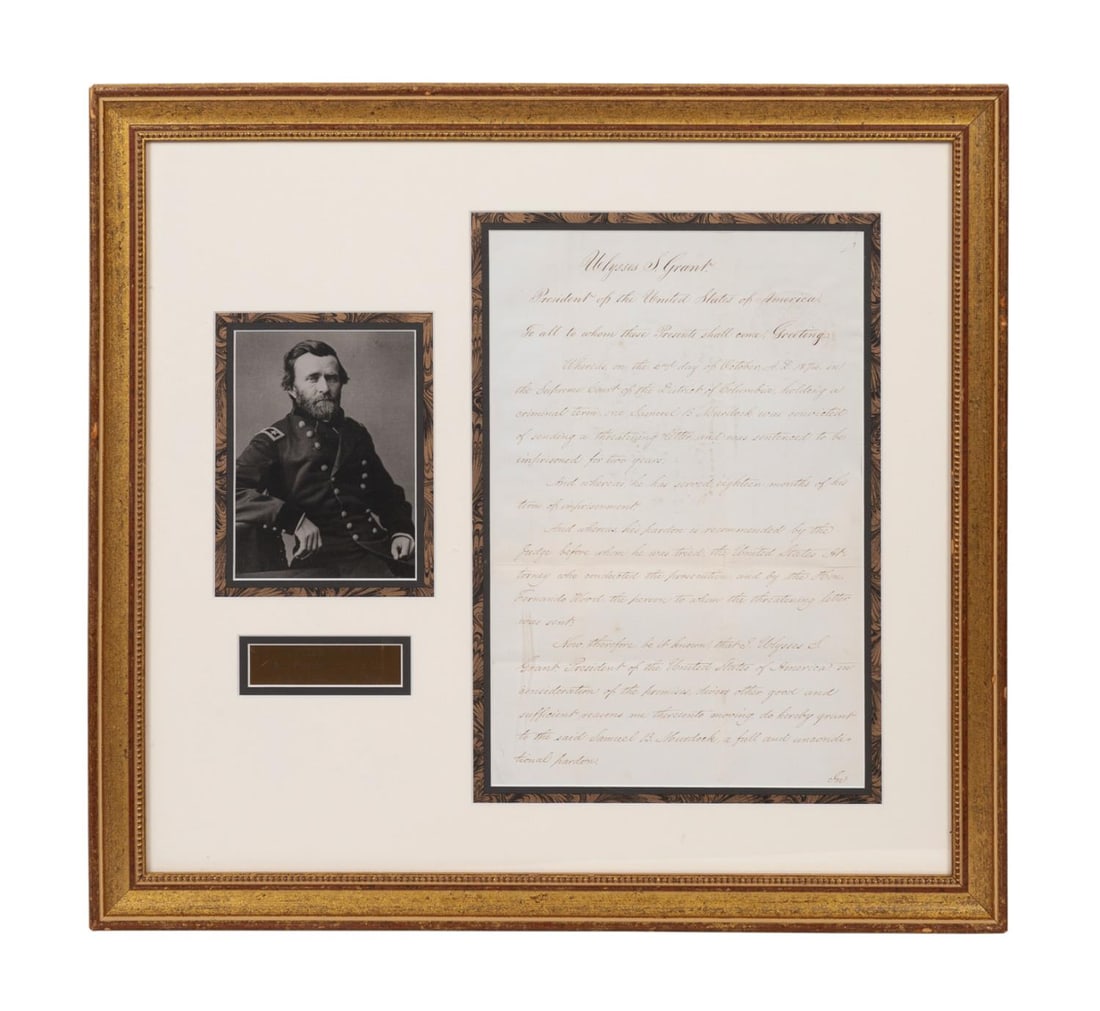 Ulysses S. Grant
President of the United States of America,
To all to whom these Presents shall come, Greeting:
Whereas, on the 2nd day of October, A.D. 1874, in
the Supreme Court of the District of Columbia, holding a
criminal term, one Samuel B. Murdock was convicted
of sending a threatening letter, and was sentenced to be
imprisoned for two years;
And whereas, he has served eighteen months of his
term of imprisonment
And whereas, his pardon is recommended by the
Judge before whom he was tried, the United States At-
torney who conducted the prosecution, and by the Hon.
Fernando Wood, the person to whom the threatening letter
was sent;
Now, therefore, be it known, that I, Ulysses S.
Grant, President of the United States of America, in
consideration of the premises, divers other good and
sufficient reasons me thereunto moving, do hereby grant
to the said Samuel B. Murdock, a full and uncondi-
tional pardon.
In